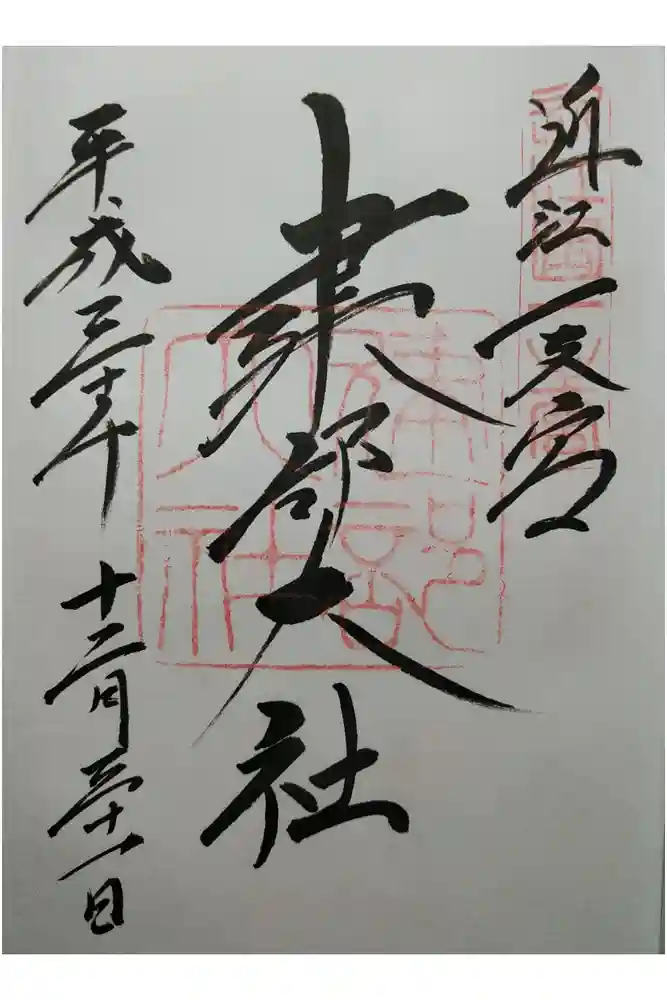 近江一之宮
建部大社
平成三十年 十二月三十一日
建部大社